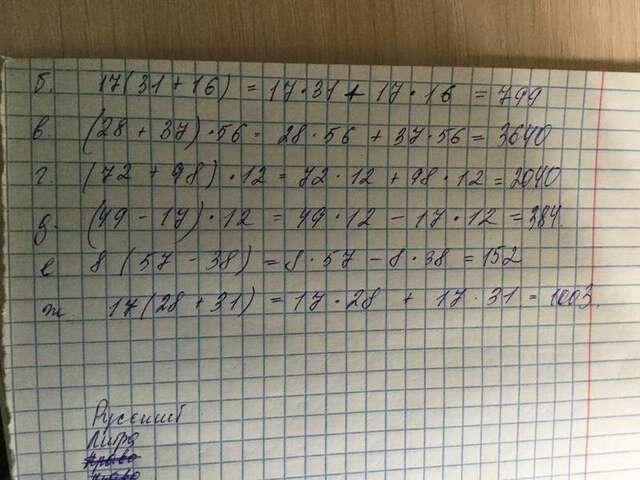 б. 17(31+16) = 17·31 + 17·16 = 799
в. (28 + 37)·56 = 28·56 + 37·56 = 3640
г. (72 + 98)·12 = 72·12 + 98·12 = 2040
д. (49 - 17)·12 = 49·12 - 17·12 = 384.
е 8 (57 - 38) = 8·57 - 8·38 = 152
ж. 17(28 + 31) = 17·28 + 17·31 = 1003.
Русский
Литра